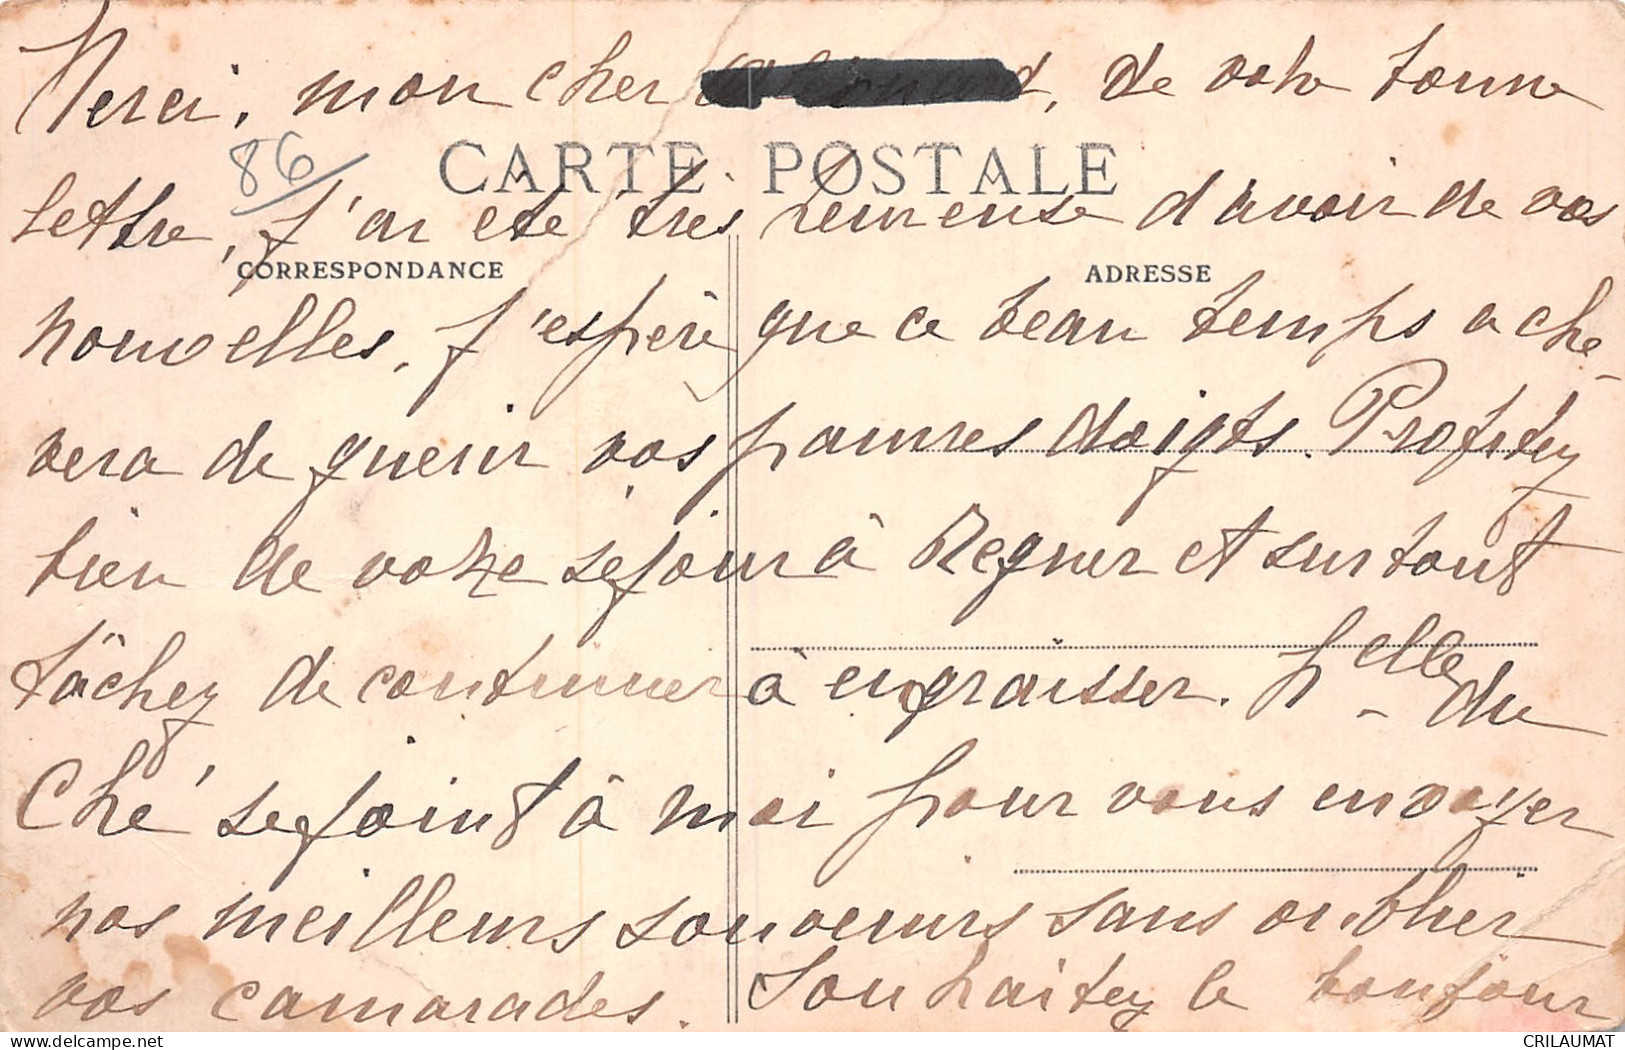 Merci, mon cher, de votre bonne
86
CARTE POSTALE
lettre, j'ai ete très heureuse d'avoir de vos
CORRESPONDANCE
ADRESSE
nouvelles. J'espère que ce beau temps ache-
vera de guerir vos pauvres doigts. Profitez
bien de votre sejour à et surtout
tâchez de continuer à engraisser. Melle du
Ché se joint à moi pour vous envoyer
nos meilleurs souvenirs sans oublier
vos camarades. Souhaitez le bonjour
CRILAUMAT